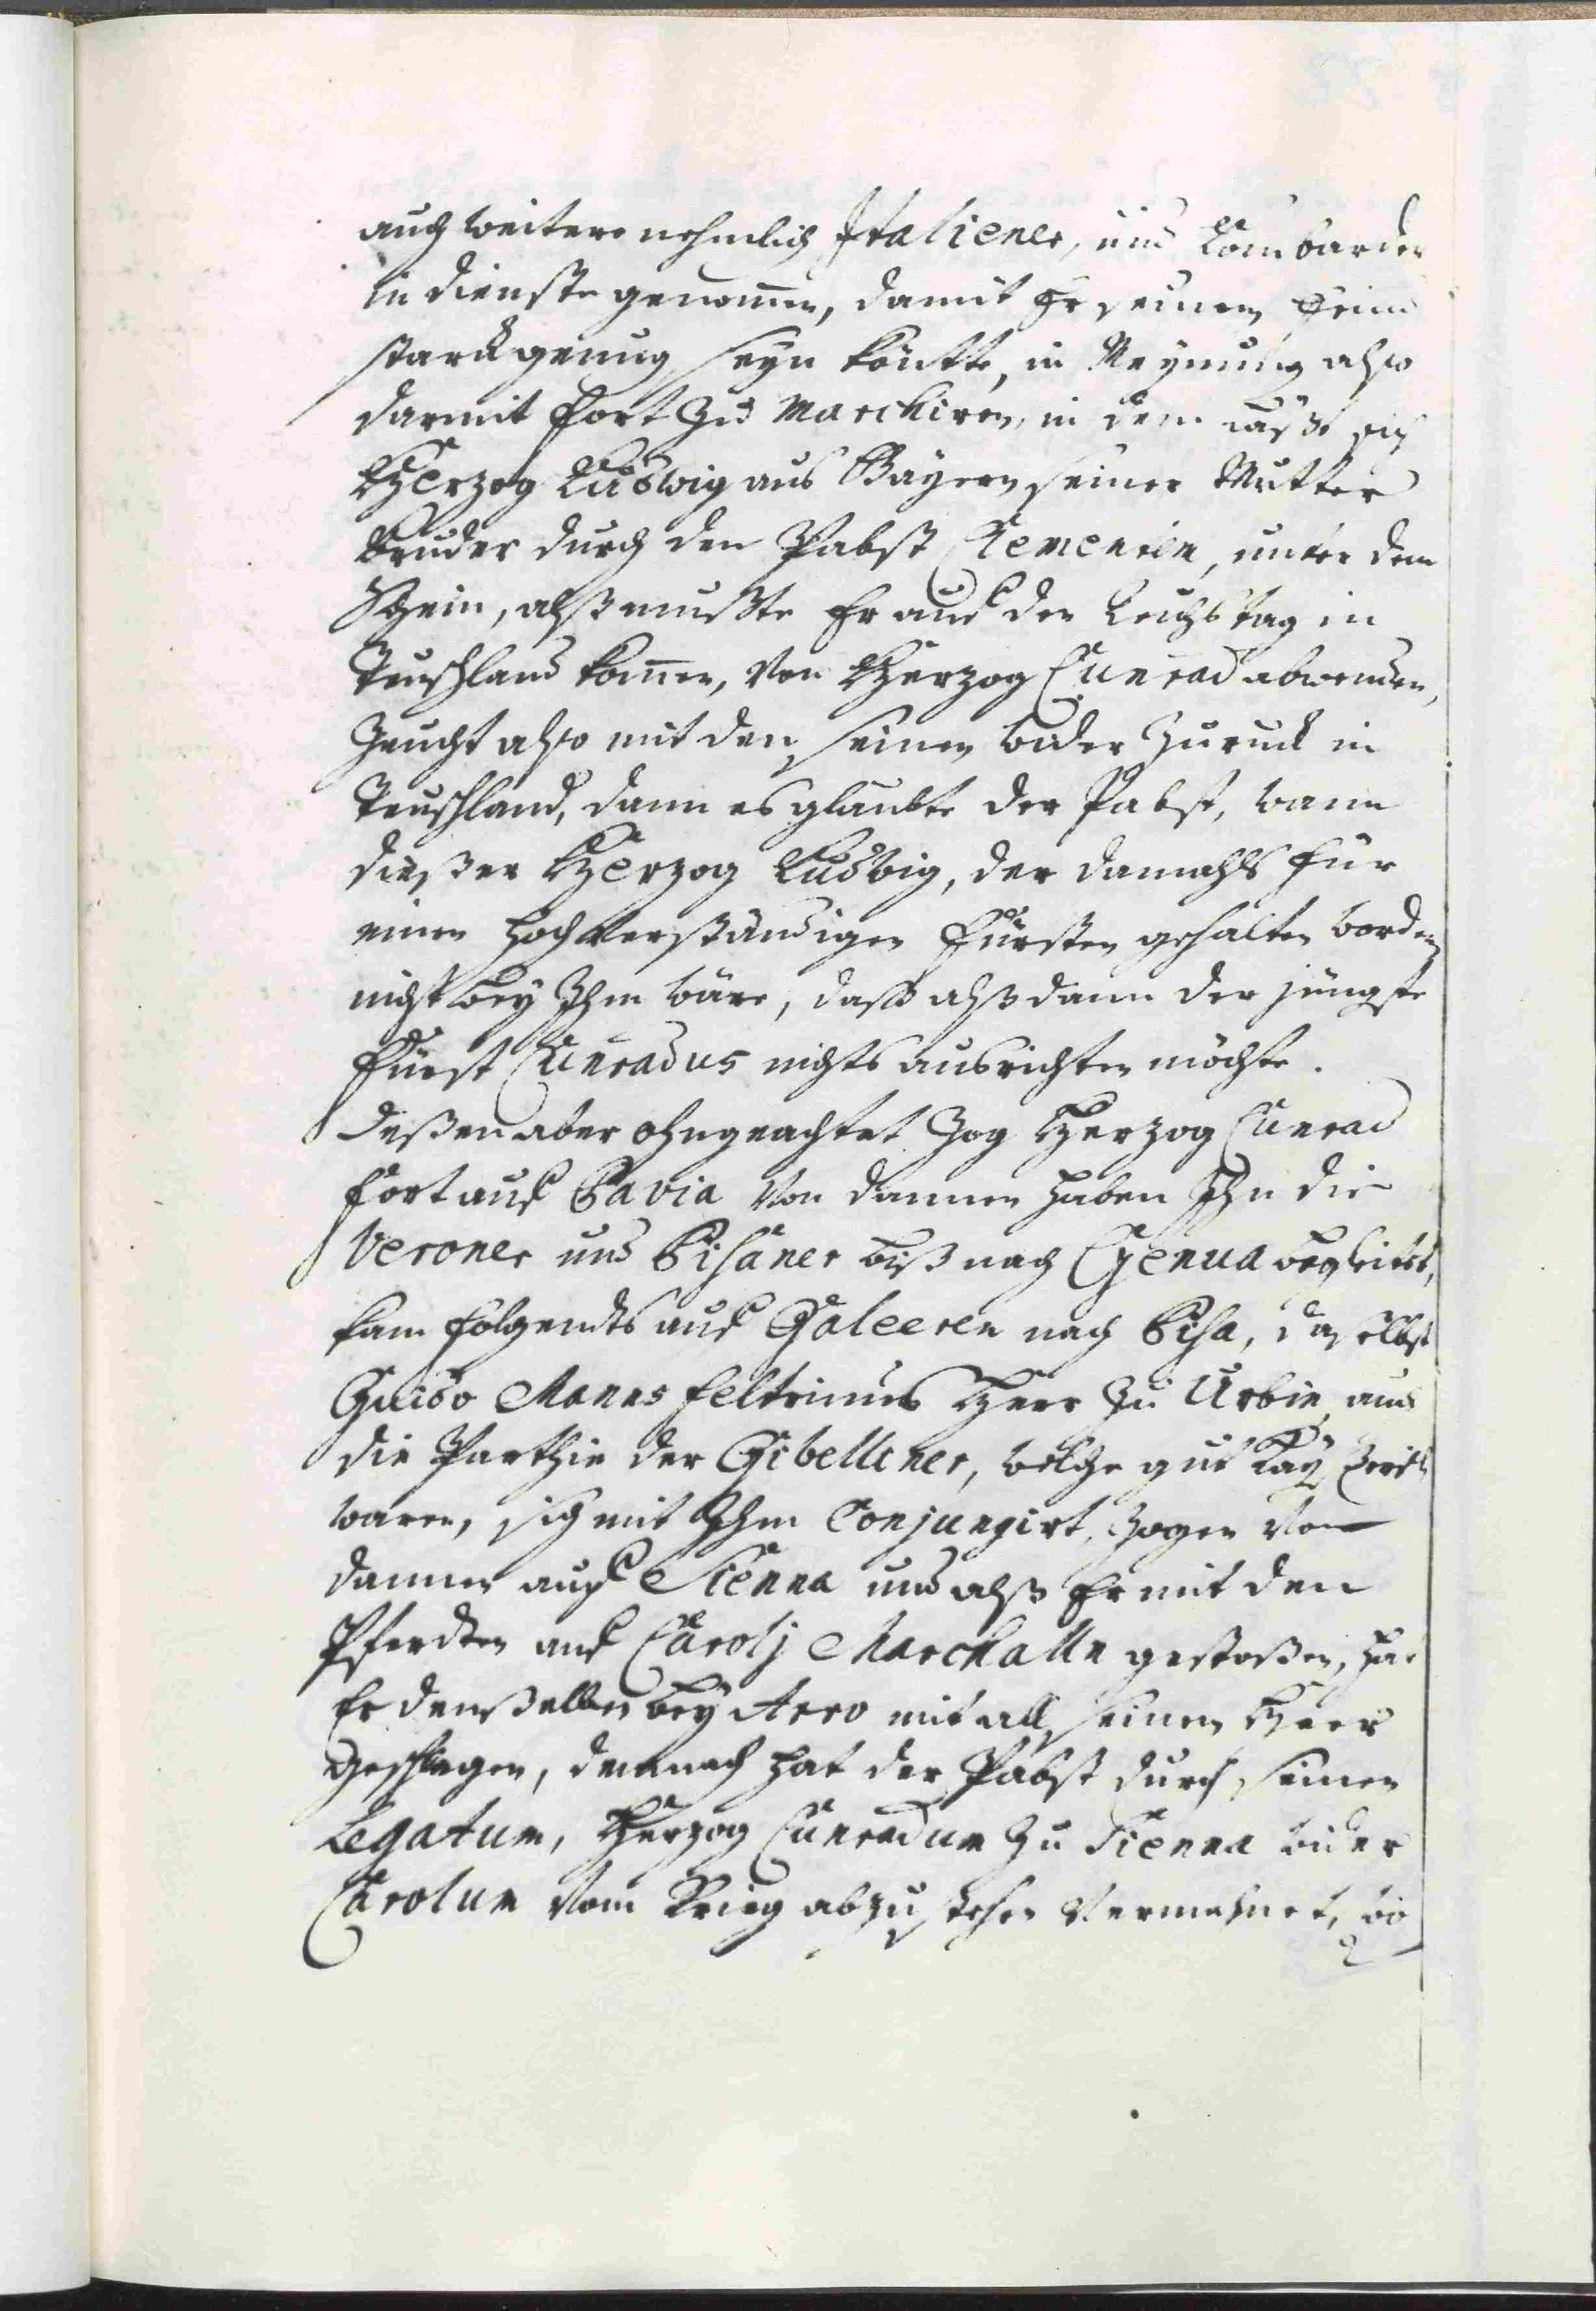 auch weitere nehmlich Italiener, und Lombarder
in dienste genommen, damit Er seinem Feind
starck genug seyn köntte, in Meynung also
darmit fort zu marchiren, in dem läßt sich
Herzog Ludwig aus Bayern seiner Mutter
Bruder durch den Pabst Clementem, unter dem
Schein, alß müßte Er auf den Reichstag in
Teuschland kommen, von Herzog Cunrad abwenden,
Zeucht also mit den seinen wider zuruck in
Teuschland, dann es glaubte der Pabst, wann
dießer Herzog Ludwig, der damahls für
einen hochverständigen Fürsten gehalten worden
nicht bey Ihm wäre, daß alßdann der jüngste
Fürst Cunradus nichts ausrichten möchte.
Deßen aber ohngeachtet zog Herzog Cunrad
fort auf Pavia von dannen haben Ihn die
Veroner und Pisaner biß nach Genua begleitet,
kam folgendts auf Galeeren nach Pisa, daselbst
Guido Manns feltrinus Herr zu Urbin und
die Parthie der Gibelliner, welche gut Kay
waren, sich mit Ihm Conjungirt, zogen von
dannen auf Sienna und alß Er mit den
Pferdten auf Carolj Marchalln gestoßen, hat
Er denselben bey Arro mit all seinem Heer
geschlagen, demnach hat der Pabst durch seinen
Legatum, Herzog Cunradum zu Sienna wider
Carolum vom Krieg abzustehen vermahnet, wo